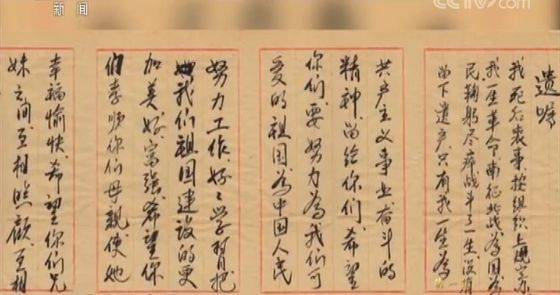 新闻
CCTV.com
遗嘱
我死后丧事,按组织上规定
我一生革命南征北战为国为
民鞠躬尽瘁战斗了一生,没有
留下遗产,只有我一生为
共产主义事业奋斗的
精神,留给你们,希望
你们要努力为我们可
爱的祖国为中国人民
努力工作,好々学習把
我们祖国建设的更
加美好富强,希望你
们孝顺你们母親,使她
幸福愉快,希望你们兄
妹之间互相照顧,互相